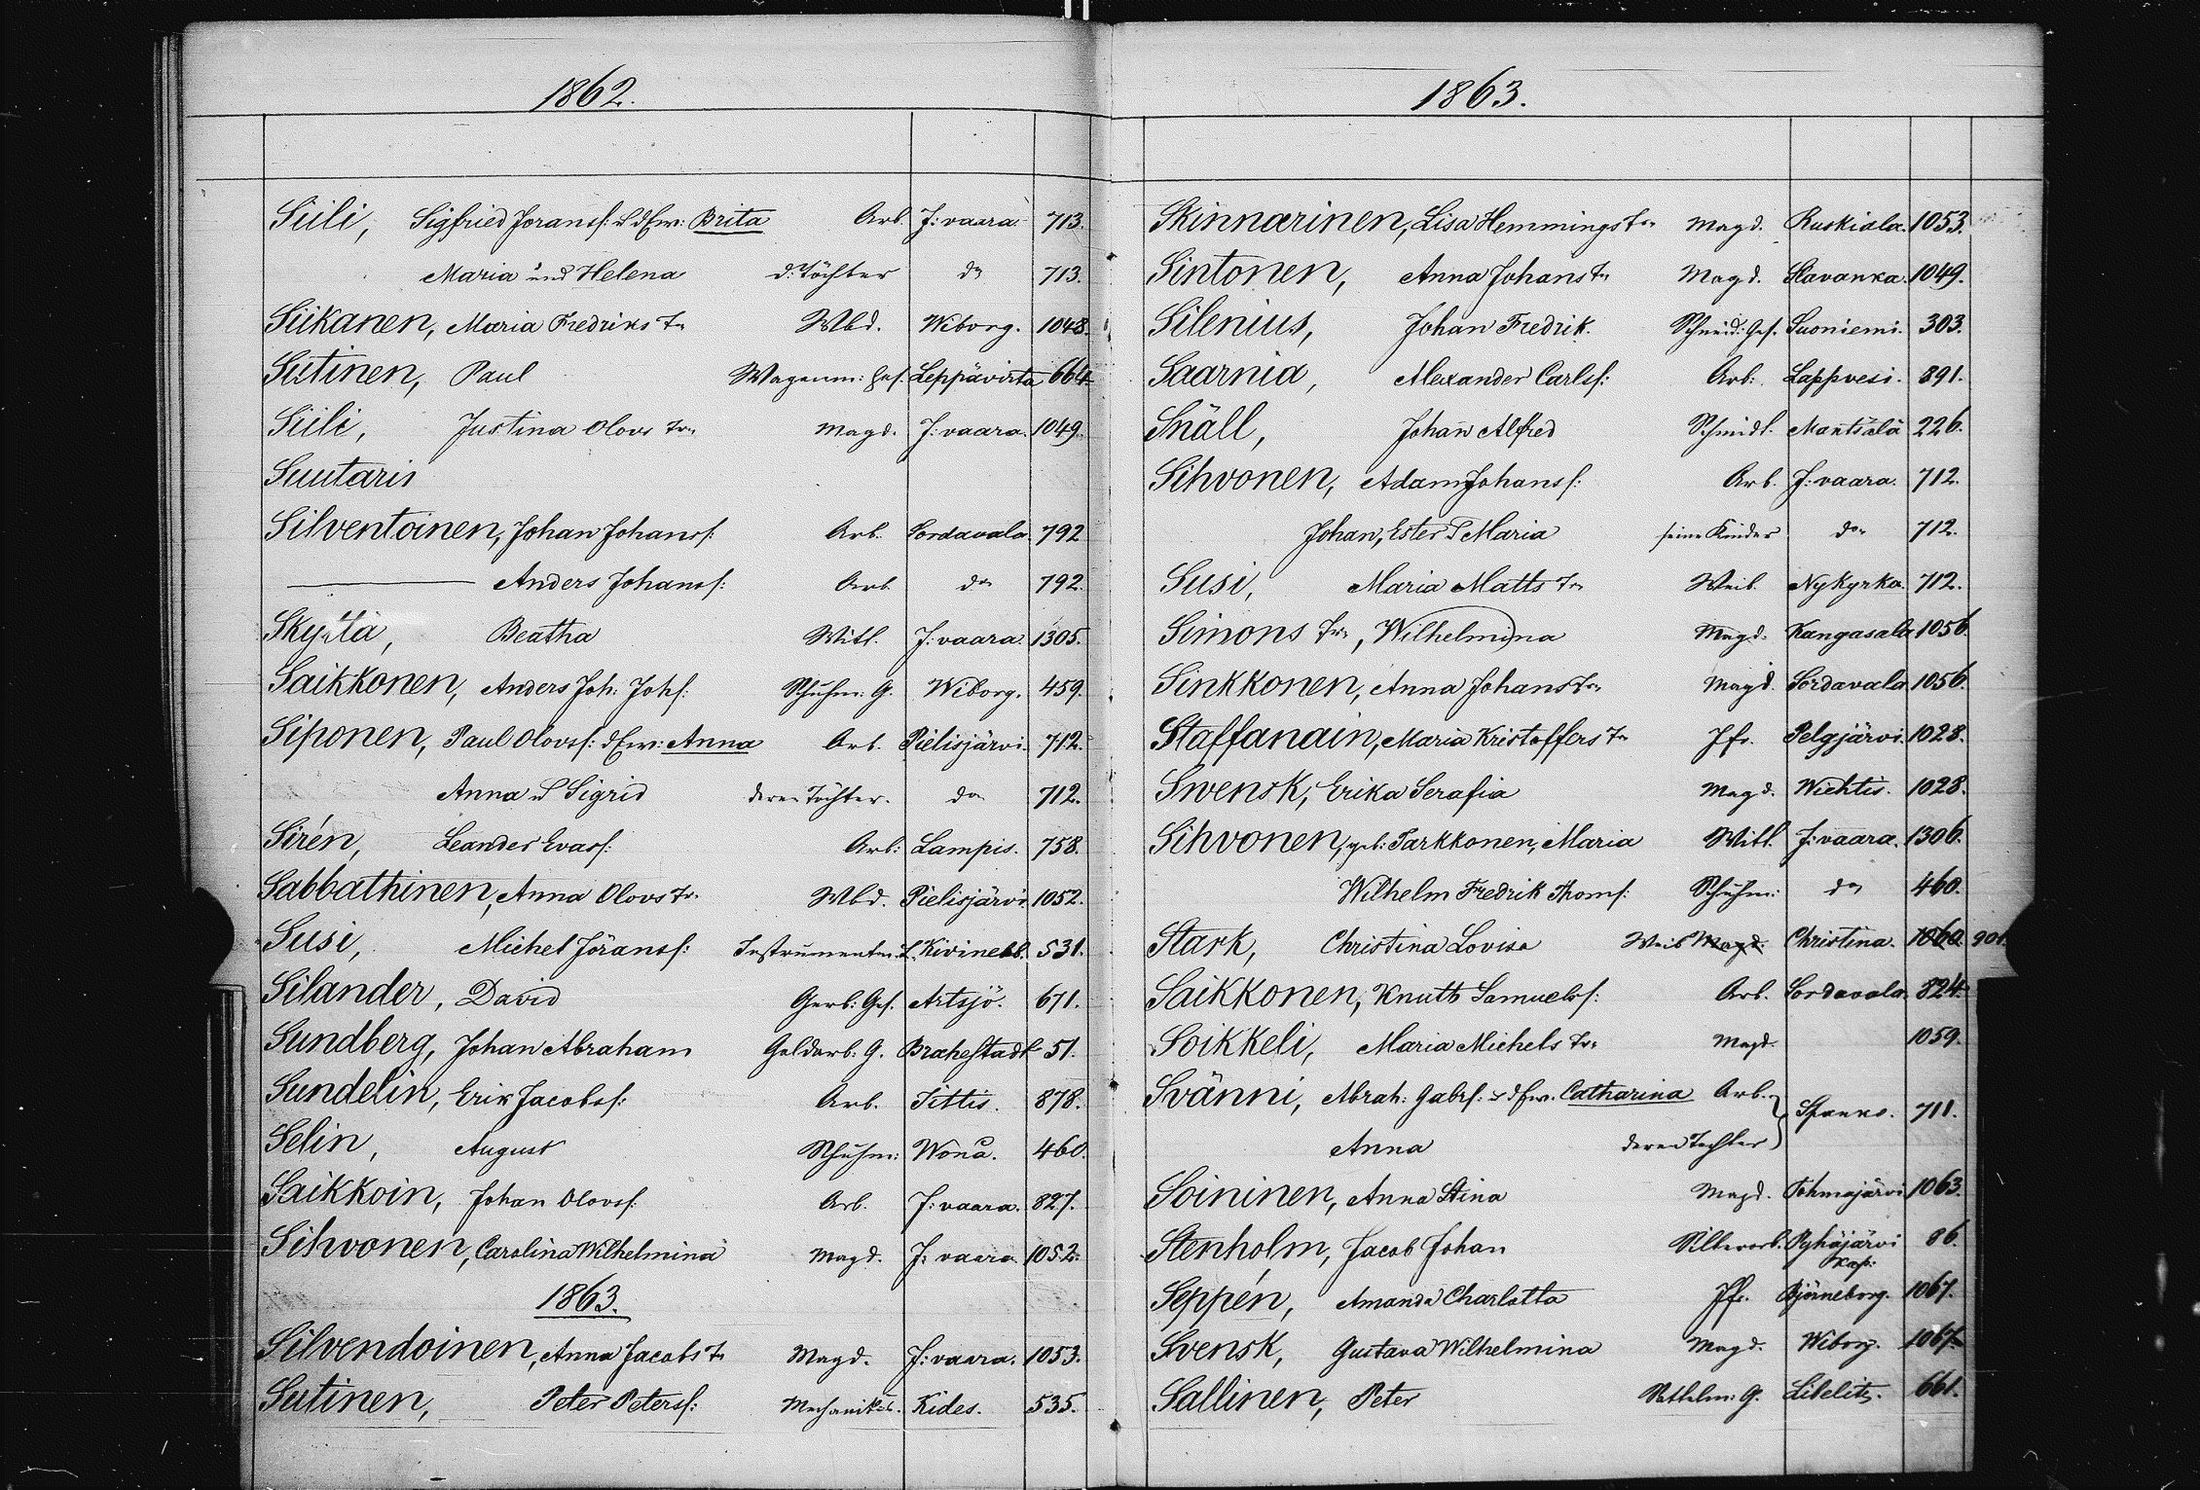 1862.
Siili, Sigfried Joransf: u. d Ew: Brita Arb. J:vaara 713.
Maria und Helena d: Töchter do 713.
Siikanen, Maria Fredriks Tr. Wbd. Wiborg. 1048.
Sutinen, Paul Wagenm: Ges. Leppävirta 664.
Siili, Justina Olovs Tr. Magd. J:vaara. 1049.
Suutaris
Silventoinen, Johan Johansf: Arb. Sordavala 792
Anders Johansf: Arb. do 792.
Skyttä, Beatha Witl. J:vaara 1305.
Saikkonen, Anders Joh. Johf: Schuhm: G. Wiborg. 459.
Siponen, Paul Olovsf: d Ew: Anna Arb. Pielisjärvi 712.
Anna u Sigrid deren Töchter. do 712.
Sirén, Leander Evasf: Arb: Lampis. 758.
Sabbathinen, Anna Olovs Tr. Wbd. Pielisjärvi. 1052.
Susi, Michel Jöransf: Instrumentm: L. Kivineb. 531.
Silander, David Gerb: Ges. Artsjö. 671.
Sundberg, Johan Abraham Goldarb: G. Brahestadt 51.
Sundelin, Erik Jacobsf: Arb. Tittis. 878.
Selin, August Schuhm: 460.
Saikkoin, Johan Olovsf. Arb. J:vaara. 827.
Sihvonen, Carolina Wilhelmina Magd. J:vaara. 1052.
1863.
Silvendoinen, Anna Jacobs Tr Magd. J:vaara. 1053.
Sutinen, Peter Petersf: Mechanikus. Kides. 535.
1863.
Skinnarinen, Lisa Hemmings Tr. Magd. Ruskiala. 1053.
Sintonen, Anna Johans Tr. Magd. Slavanka. 1049.
Silenius, Johan Fredrik. Schneid: Ges. Suoniemi. 303.
Saarnia, Alexander Carlsf: Arb: Lappvesi. 891.
Snäll, Johan Alfred Schmidt. Mäntsälä 226.
Sihvonen, Adam Johansf: Arb. J:vaara. 712.
Johan, Ester u Maria seine Kinder do 712.
Susi, Maria Matts Tr. Weib. Nykyrka. 712.
Simons Tr., Wilhelmina Magd. Kangasala 1056.
Sinkkonen, Anna Johans Tr. Magd. Sordavala 1056.
Staffanain, Maria Kristoffers Tr Jfr. Pelgjärvi. 1028.
Swensk, Erika Serafia Magd. Wichtis. 1028.
Sihvonen, geb: Parkkonen, Maria Witl. J:vaara. 1306.
Wilhelm Fredrik Thomsf: Schuhm: do 460.
Stark, Christina Lovisa Weib Magd. Christina. 1060. 901.
Saikkonen, Knuth Samuelsf: Arb. Sordavala 824.
Soikkeli, Maria Michels Tr. Magd. 1059.
Svänni, Abrah: Gabrf: u d Ew. Catharina Arb. Spanko. 711.
Anna deren Tochter
Soininen, Anna Stina Magd. Tohmajärvi 1063.
Stenholm, Jacob Johan Silberarb. Pyhäjärvi 86.
Kap:
Seppén, Amanda Charlotta Jfr. Björneborg. 1067.
Svensk, Gustava Wilhelmina Magd. Wiborg. 1067.
Sallinen, Peter Sattelm: G. Libelits. 661.